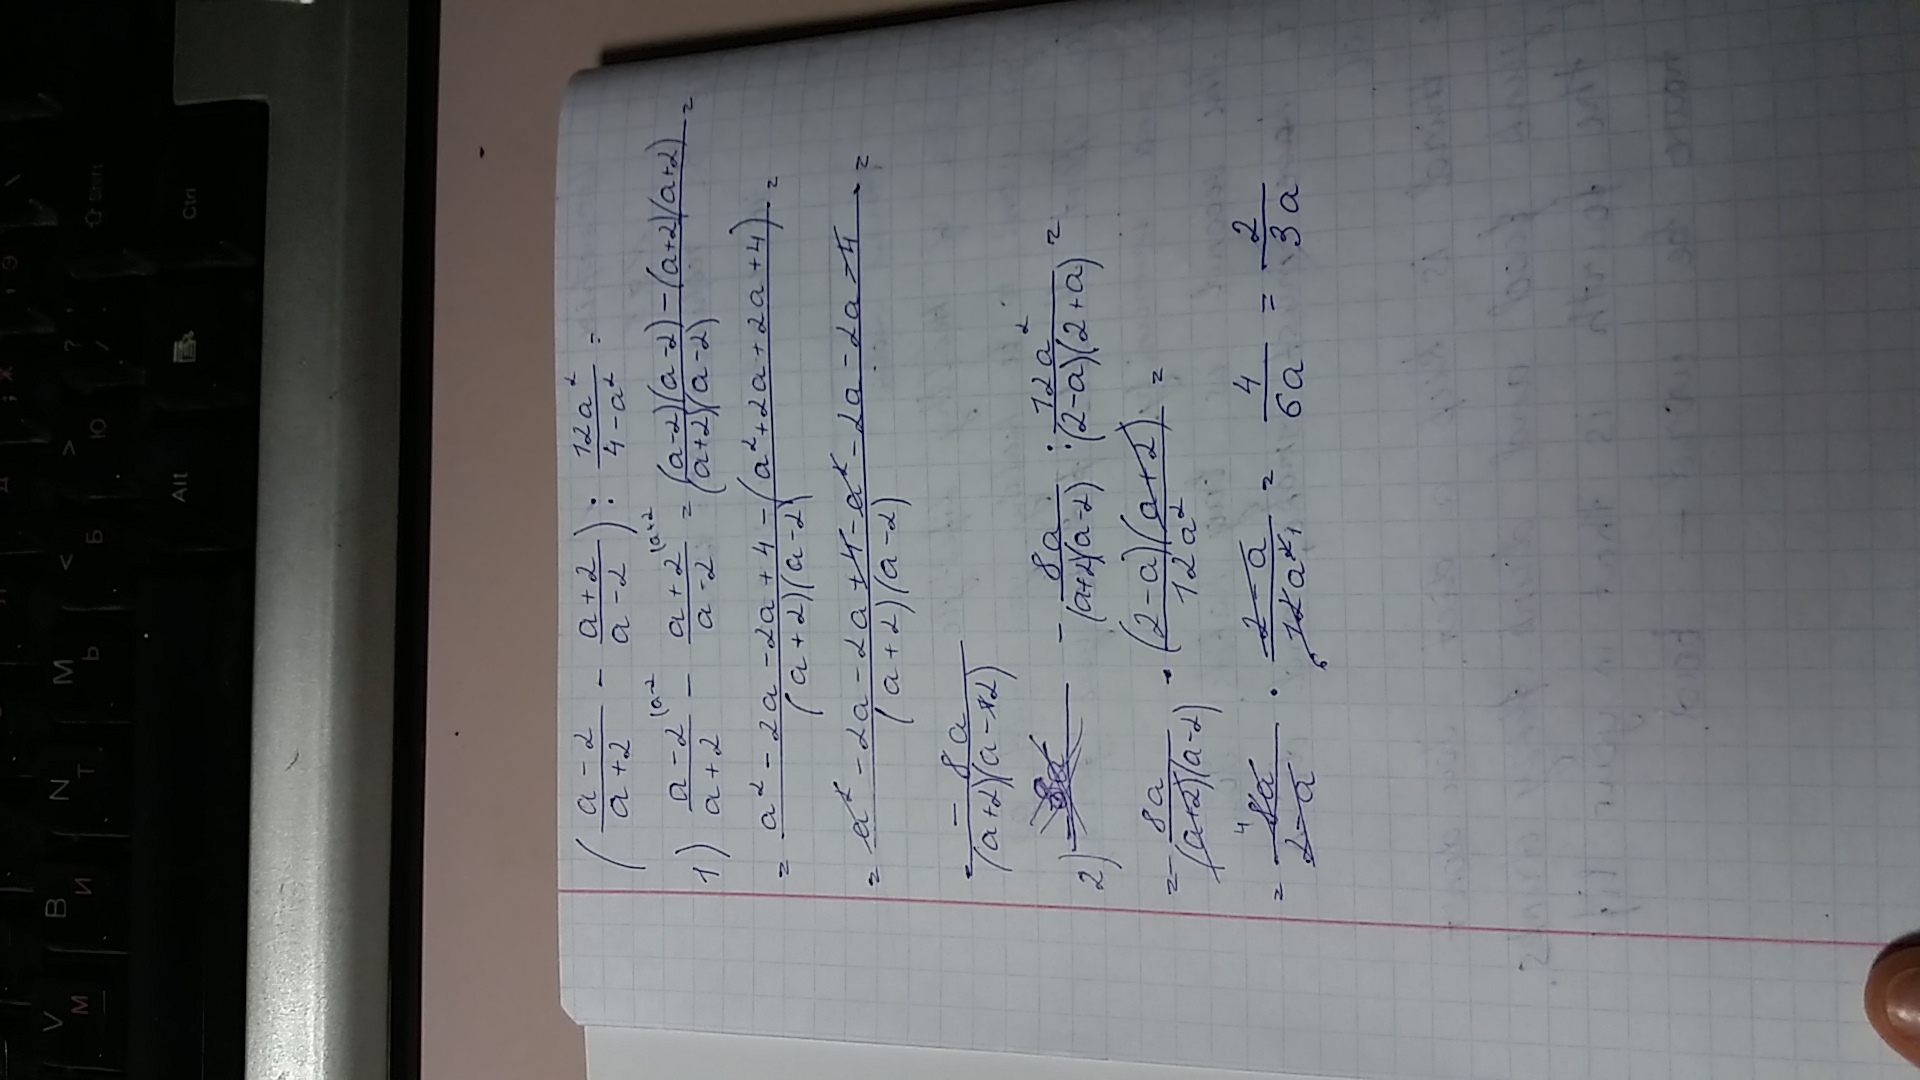 ( (a-2)/(a+2) - (a+2)/(a-2) ) : 12a²/(4-a²) =
1) (a-2)/(a+2) (a-2 - (a+2)/(a-2) (a+2 = ((a-2)(a-2)-(a+2)(a+2))/((a+2)(a-2)) =
= (a²-2a-2a+4-(a²+2a+2a+4))/((a+2)(a-2)) =
= (a²-2a-2a+4-a²-2a-2a-4)/((a+2)(a-2)) =
= -8a/((a+2)(a-2))
2) - 8a/((a+2)(a-2)) : 12a²/((2-a)(2+a)) =
= - 8a/((a+2)(a-2)) · ((2-a)(a+2))/12a² =
= 4 8a/(2-a) · (2-a)/(6 12a² 1) = 4/6a = 2/3a
V М
В И
N Т
М Ь
< Б
> Ю
? / .
Alt
Ctrl
⇧ Shift
Д
; Ж
' Э
\